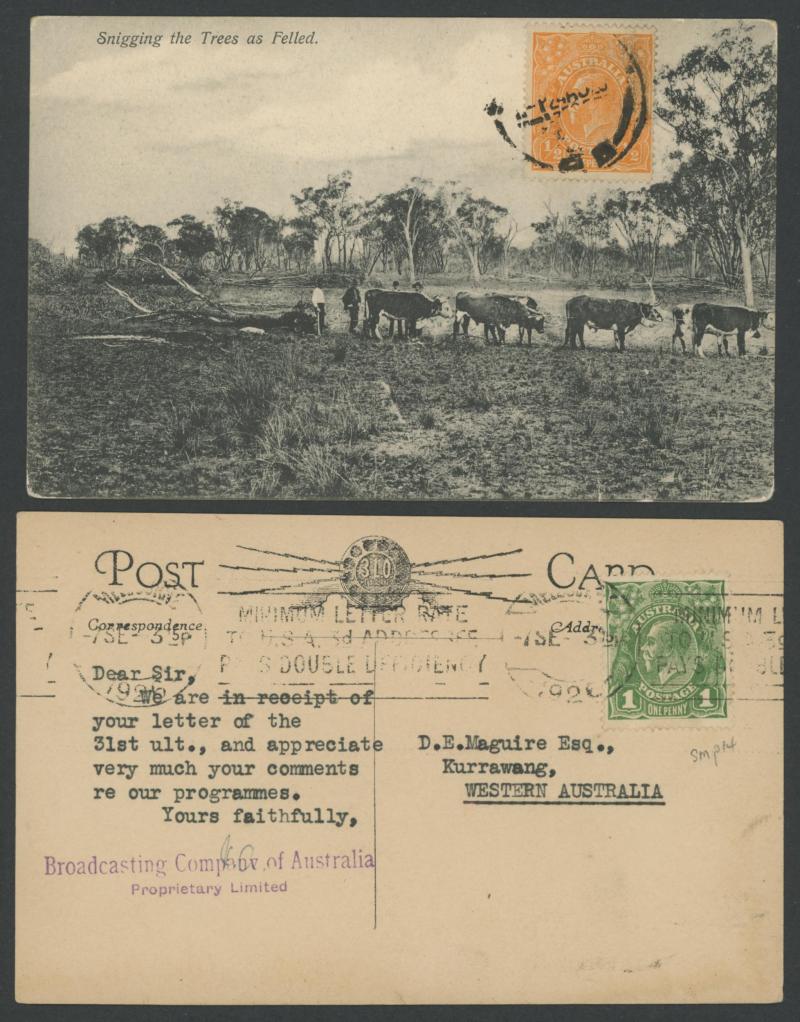 Snigging the Trees as Felled.
AUSTRALIA
1/2 1/2
POST CARD
3LO
MINIMUM LETTER RATE
TO U.S.A. 3d ADDRESSEE
PAYS DOUBLE DEFICIENCY
7 SE - 3 PM
192
Correspondence.
Dear Sir,
We are in receipt of
your letter of the
31st ult., and appreciate
very much your comments
re our programmes.
Yours faithfully,
Broadcasting Company of Australia
Proprietary Limited
AUSTRALIA
POSTAGE
1 ONE PENNY 1
MINIMUM L
PAYS
D.E.Maguire Esq.,
Kurrawang,
WESTERN AUSTRALIA